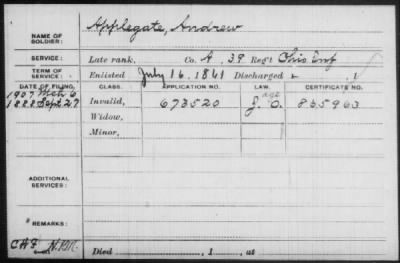 Applegate, Andrew
NAME OF SOLDIER:
SERVICE: Late rank, Co. A, 39 Reg't Ohio Inf
TERM OF SERVICE: Enlisted July 16, 1861 Discharged , 1
DATE OF FILING. CLASS. APPLICATION NO. LAW. CERTIFICATE NO.
1907 Mch 6 age
1888 Sept 27 Invalid, 673520 J. O. 835963
Widow,
Minor,
ADDITIONAL SERVICES:
REMARKS:
Died , 1 , at